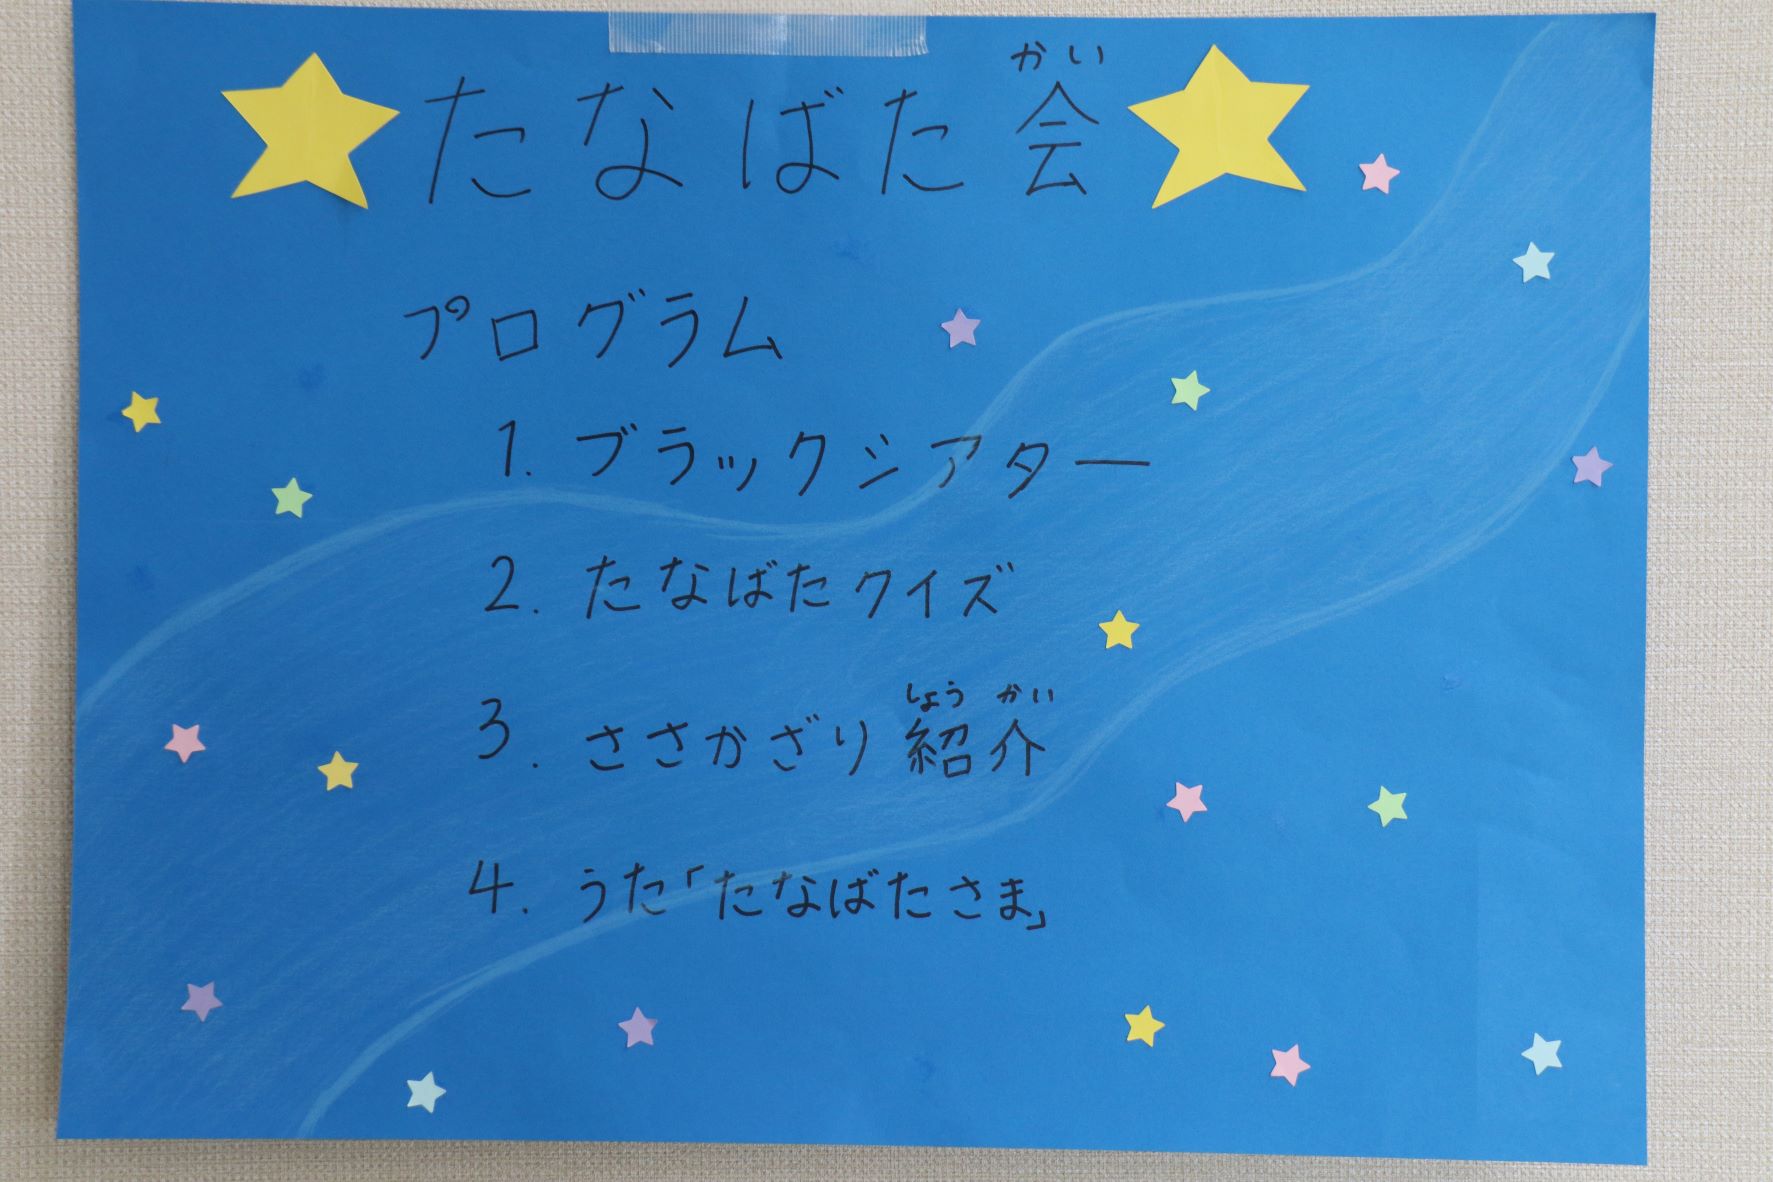 かい
たなばた会
プログラム
1. ブラックシアター
2. たなばたクイズ
しょう かい
3. ささかざり紹介
4. うた「たなばたさま」